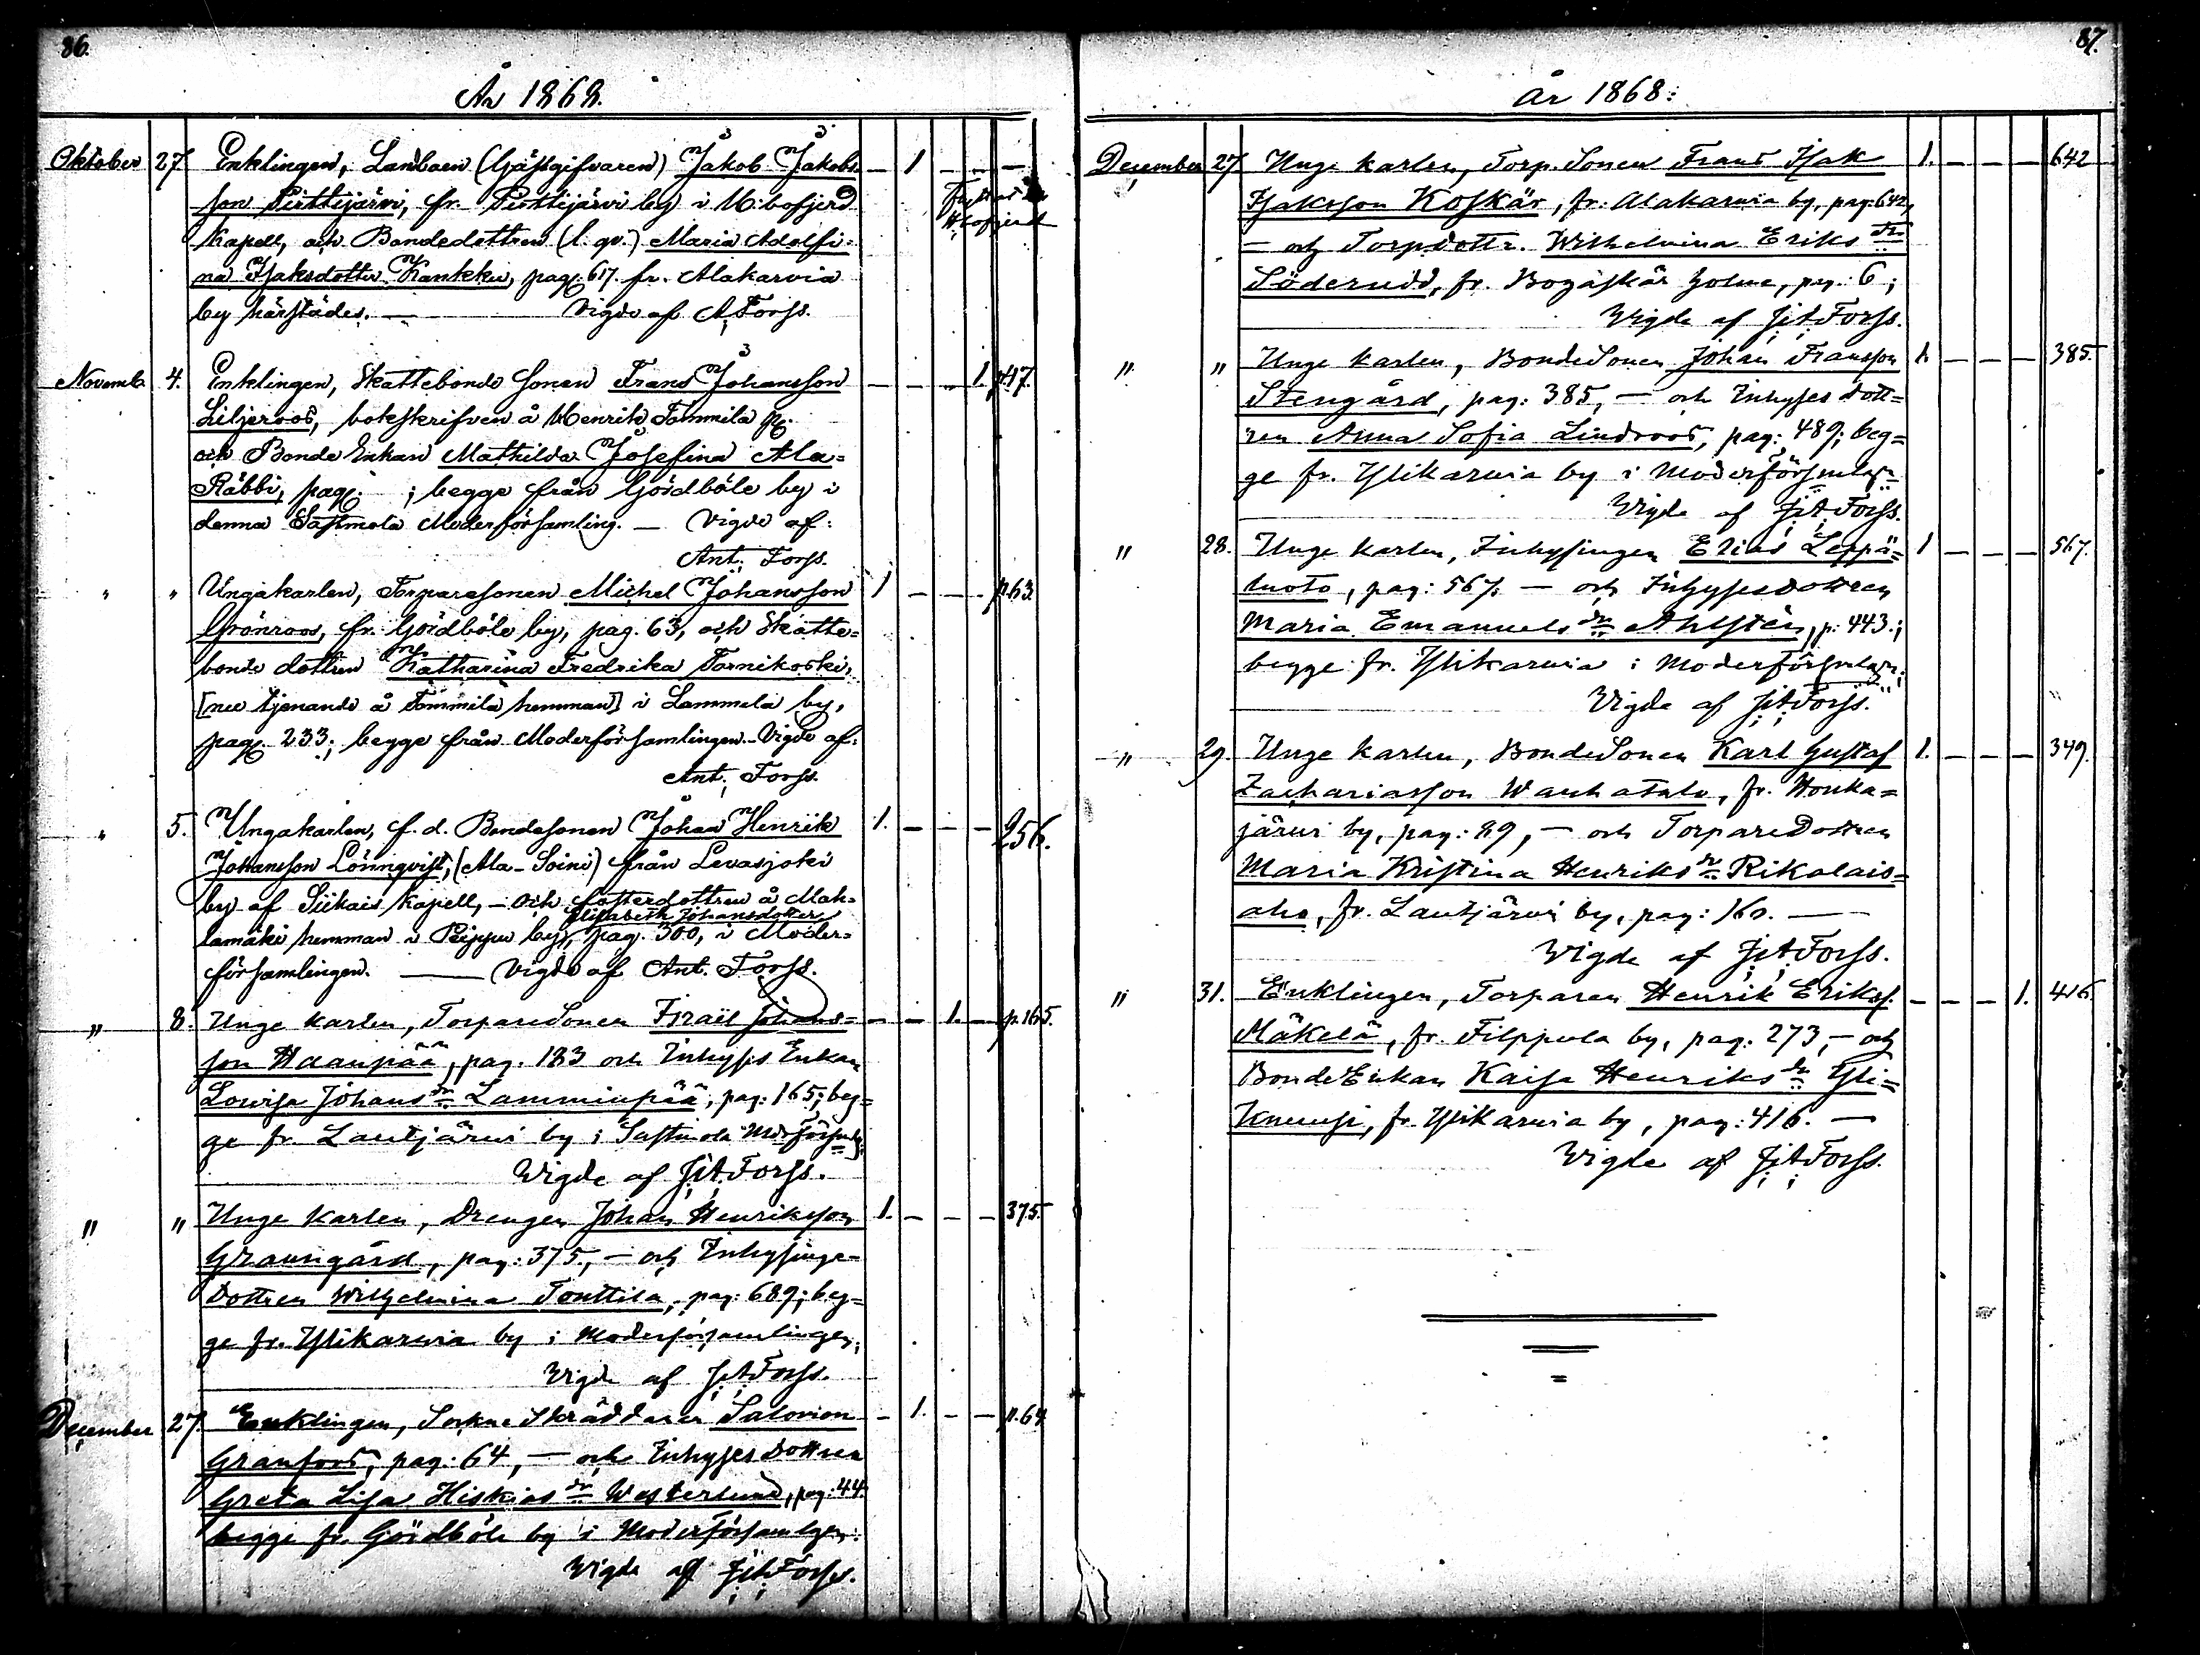 86.
År 1868.
Oktober 27. Enklingen, Landboen (Gästgifvaren) Jakob Jakobs- — 1 — — —
son Pirttijärvi, fr. Pirttijärvi by i Hvbofjerd
Kapell, och Bondedottren (l. qv.) Maria Adolfi-
na Isaksdotter Kankku, pag. 617. fr. Alakarvia
by härstädes. — Vigde af A. Forss.
Novemb. 4. Enklingen, Skattebonde Sonen Frans Johansson — — — 1. p47.
Liljeroos, bokskrifven å Henrik Tommila pg.
och Bonde Enkan Mathilda Josefina Ala-
Räbbi, pag. ; begge från Gördböle by i
denna Sastmola Moderförsamling. — Vigde af:
Ant. Forss.
" " Ungakarlen, Torparesonen Michel Johansson 1 — — — p.63.
Grönroos, fr. Gördböle by, pag. 63, och Skatte-
bonde dottren Katharina Fredrika Tornikoski,
[nu tjenande å Tommila hemman] i Lammela by,
pag. 233; begge från Moderförsamlingen. Vigde af:
Ant. Forss.
" 5. Ungakarlen, f. d. Bondesonen Johan Henrik 1. — — — 256.
Johansson Lönnqvist, (Ala-Soini) från Levasjoki
by af Siikais Kapell, — och fosterdottren å Mak-
Elisabeth Johansdotter
lamäki hemman i Peippu by, pag. 300, i Moder-
församlingen. — Vigde af Ant. Forss.
" 8. Unge karlen, TorpareSonen Israil Johans- — — 1. — p.165.
son Haanpää, pag. 183 och Inhyses Enkan
Lovisa Johansdr Lamminpää, pag: 165; beg-
ge fr. Lautjärwi by i Sastmola Mdrförsmlg.
Wigde af J. A. Forss.
" " Unge karlen, Drengen Johan Henriksson 1. — — — 375.
Graungård, pag: 375, — och Inhysinge-
Dottren Wilhelmina Tonttila, pag: 689; beg-
ge fr. Yllikarvia by i Moderförsamlingen,
Wigde af J. A. Forss.
December 27. Enklingen, SockneSkräddaren Salomon — 1. — — p.64
Granfors, pag: 64, — och Inhyses Dottren
Greta Lisa Hiskiasdr Westerlund, pag: 44
begge fr. Gördböle by i Moderförsamlgn.
Wigde af J. A. Forss.
87.
År 1868:
December 27. Unge karlen, Torp. Sonen Frans Isak 1. — — — 642
Isaksson Koskär, fr. Alakarvia by, pag: 642,
— och Torpdottr. Wilhelmina Eriksdr
Söderudd, fr. Bogaskär holme, pag. 6;
Wigde af J. A. Forss.
" " Unge karlen, BondeSonen Johan Fransson 1. — — — 385.
Stengård, pag: 385, — och Inhyses dott-
ren Anna Sofia Lindroos, pag: 489; beg-
ge fr. Yllikarvia by i Moderförsmlgn
Wigde af J. A. Forss.
" 28. Unge karlen, Inhysingen Elias Leppä- 1 — — — 567.
luoto, pag: 567. — och Inhysesdottren
Maria Emanuelsdr Ahlstén, p: 443.;
begge fr. Yllikarvia i Moderförsmlgn.
Wigde af J. A. Forss.
" 29. Unge karlen, BondeSonen Karl Gustaf 1. — — — 349.
Zachariasson Wanhatalo, fr. Honka-
järwi by, pag: 89, — och TorpareDottren
Maria Kristina Henriksdr Rikalais-
aho, fr. Lautjärwi by, pag: 160. —
Wigde af J. A. Forss.
" 31. Enklingen, Torparen Henrik Eriksf. — — — 1. 416.
Mäkelä, fr. Filppula by, pag. 273, — och
BondeEnkan Kaisa Henriksdr Yli-
Knuusi, fr. Yllikarvia by, pag: 416. —
Wigde af J. A. Forss.